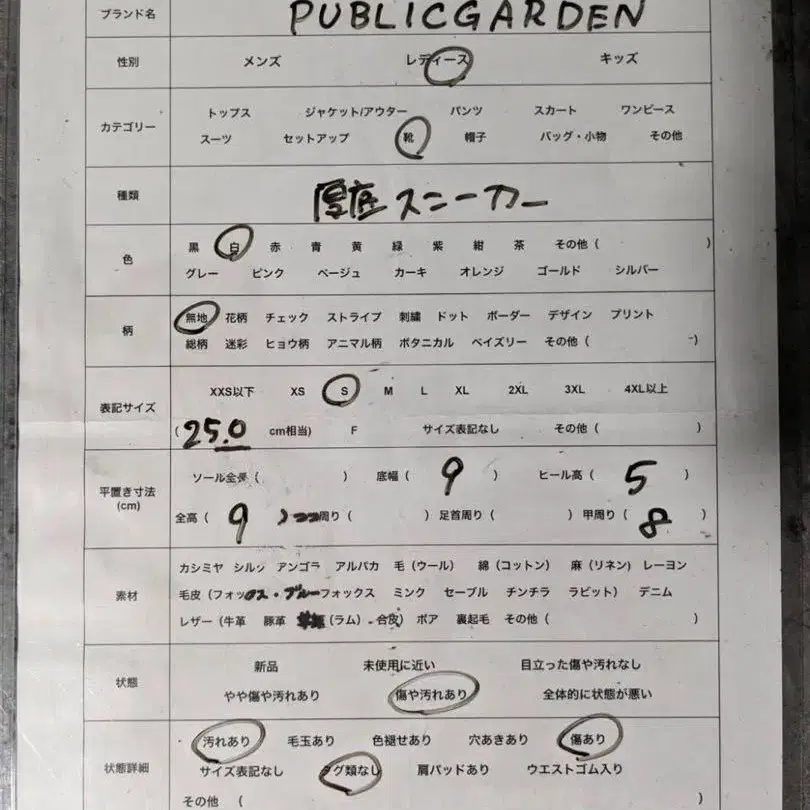 ブランド名 PUBLICGARDEN
性別 メンズ レディース キッズ
カテゴリー トップス ジャケット/アウター パンツ スカート ワンピース
スーツ セットアップ 靴 帽子 バッグ・小物 その他
種類 厚底スニーカー
色 黒 白 赤 青 黄 緑 紫 紺 茶 その他 ( )
グレー ピンク ベージュ カーキ オレンジ ゴールド シルバー
柄 無地 花柄 チェック ストライプ 刺繍 ドット ボーダー デザイン プリント
総柄 迷彩 ヒョウ柄 アニマル柄 ボタニカル ペイズリー その他 ( )
表記サイズ XXS以下 XS S M L XL 2XL 3XL 4XL以上
( 25.0 cm相当) F サイズ表記なし その他 ( )
平置き寸法 (cm) ソール全長 ( ) 底幅 ( 9 ) ヒール高 ( 5 )
全高 ( 9 ) 周り ( ) 足首周り ( ) 甲周り ( 8 )
素材 カシミヤ シルク アンゴラ アルパカ 毛 (ウール) 綿 (コットン) 麻 (リネン) レーヨン
毛皮 (フォックス・ブルーフォックス ミンク セーブル チンチラ ラビット) デニム
レザー (牛革 豚革 (ラム) 合皮) ボア 裏起毛 その他 ( )
状態 新品 未使用に近い 目立った傷や汚れなし
やや傷や汚れあり 傷や汚れあり 全体的に状態が悪い
状態詳細 汚れあり 毛玉あり 色褪せあり 穴あきあり 傷あり
サイズ表記なし タグ類なし 肩パッドあり ウエストゴム入り
その他 ( )